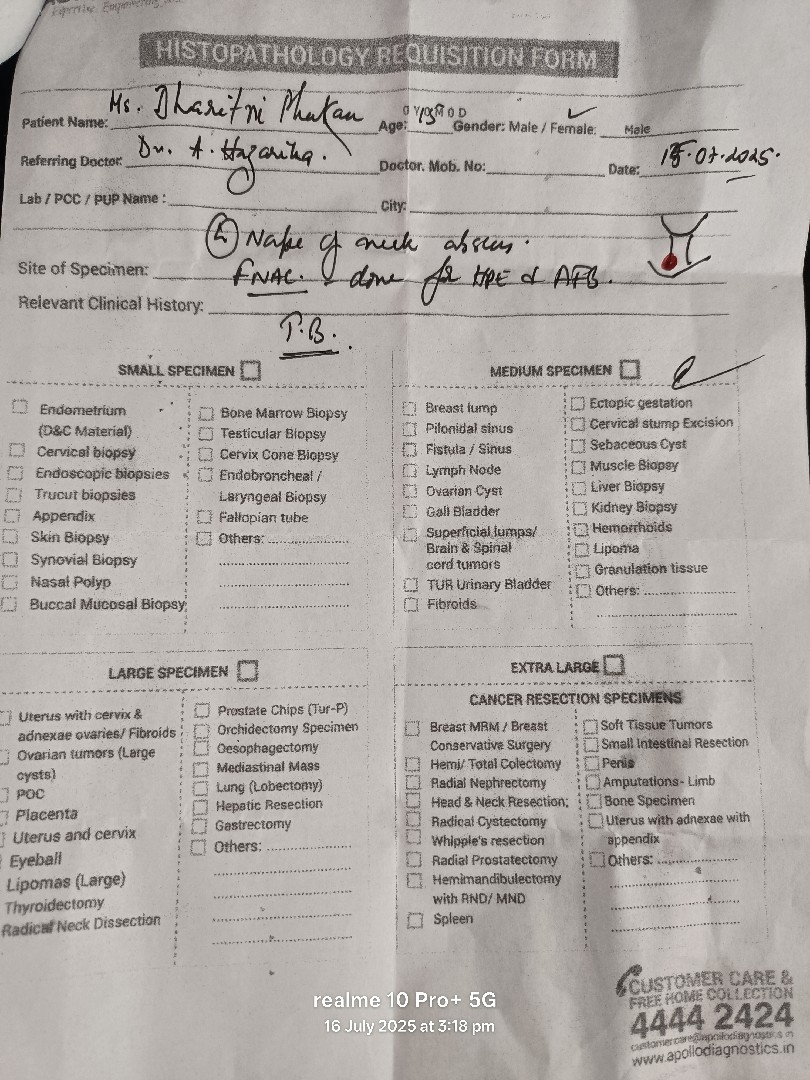 Expertise. Empowering
HISTOPATHOLOGY REQUISITION FORM
Patient Name: Ms. Dharitri Phukan Age: Gender: Male / Female: Male
Referring Doctor: Dr. A. Hazarika. Doctor. Mob. No: Date: 15.07.2025.
Lab / PCC / PUP Name : City:
Nape of neck abscess.
Site of Specimen: FNAC. done for HPE & AFB.
Relevant Clinical History:
T.B.
SMALL SPECIMEN
Endometrium
(D&C Material)
Cervical biopsy
Endoscopic biopsies
Trucut biopsies
Appendix
Skin Biopsy
Synovial Biopsy
Nasal Polyp
Buccal Mucosal Biopsy
Bone Marrow Biopsy
Testicular Biopsy
Cervix Cone Biopsy
Endobroncheal /
Laryngeal Biopsy
Fallopian tube
Others:
MEDIUM SPECIMEN
Breast lump
Pilonidal sinus
Fistula / Sinus
Lymph Node
Ovarian Cyst
Gall Bladder
Superficial lumps/
Brain & Spinal
cord tumors
TUR Urinary Bladder
Fibroids
Ectopic gestation
Cervical stump Excision
Sebaceous Cyst
Muscle Biopsy
Liver Biopsy
Kidney Biopsy
Hemorrhoids
Lipoma
Granulation tissue
Others:
LARGE SPECIMEN
Uterus with cervix &
adnexae ovaries/ Fibroids
Ovarian tumors (Large
cysts)
POC
Placenta
Uterus and cervix
Eyeball
Lipomas (Large)
Thyroidectomy
Radical Neck Dissection
Prostate Chips (Tur-P)
Orchidectomy Specimen
Oesophagectomy
Mediastinal Mass
Lung (Lobectomy)
Hepatic Resection
Gastrectomy
Others:
EXTRA LARGE
CANCER RESECTION SPECIMENS
Breast MRM / Breast
Conservative Surgery
Hemi/ Total Colectomy
Radial Nephrectomy
Head & Neck Resection;
Radical Cystectomy
Whipple's resection
Radial Prostatectomy
Hemimandibulectomy
with RND/ MND
Spleen
Soft Tissue Tumors
Small Intestinal Resection
Penis
Amputations- Limb
Bone Specimen
Uterus with adnexae with
appendix
Others:
CUSTOMER CARE &
FREE HOME COLLECTION
4444 2424
customercare@apollodiagnostics.in
www.apollodiagnostics.in
realme 10 Pro+ 5G
16 July 2025 at 3:18 pm